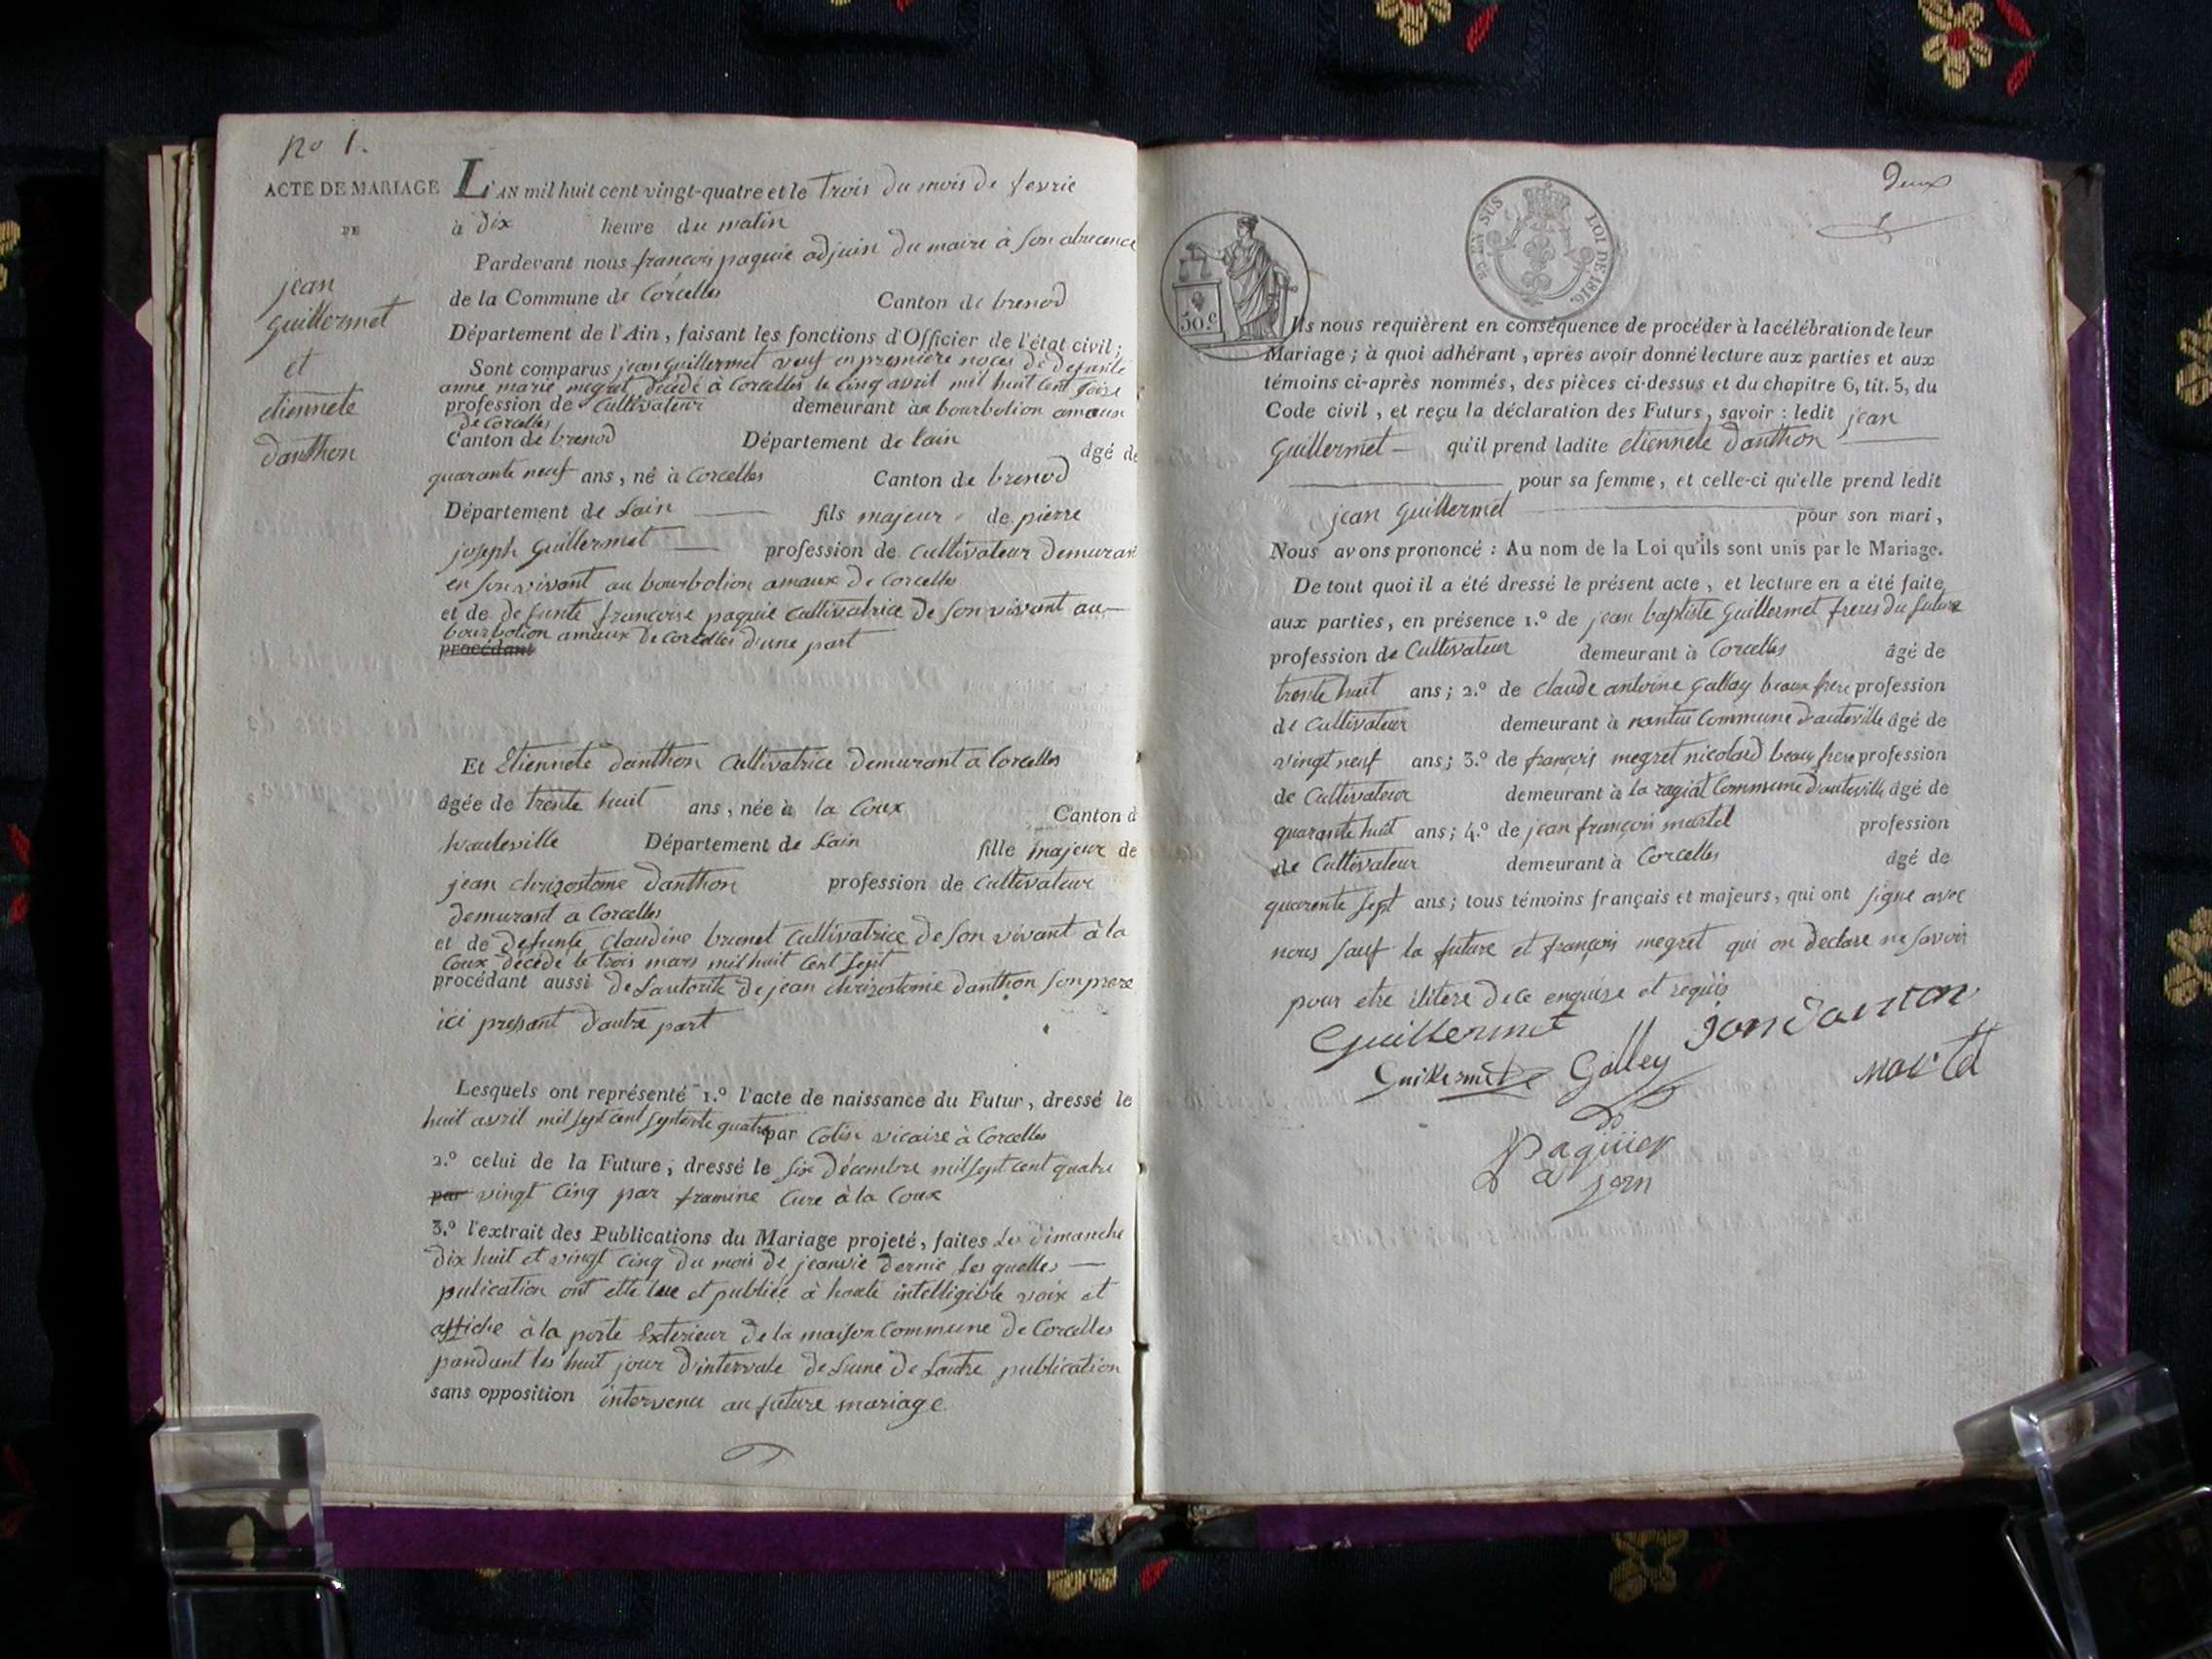 No 1.
ACTE DE MARIAGE
DE
jean
guillermet
et
etiennete
danthon
L'AN mil huit cent vingt-quatre et le trois du mois de fevrie
à dix heure du matin
Pardevant nous françois paquié adjuin du maire à son abscence
de la Commune de Corcelles Canton de brenod
Département de l'Ain, faisant les fonctions d'Officier de l'état civil;
Sont comparus jean guillermet veuf en premiere noces de defunte
anne marie megret décédé à Corcelles le cinq avril mil huit cent
profession de Cultivateur demeurant au bourbolion amaux
de Corcelles
Canton de brenod Département de lain âgé de
quarante neuf ans, né à Corcelles Canton de brenod
Département de Lain fils majeur de pierre
joseph Guillermet profession de Cultivateur demuran
en son vivant au bourbolion amaux de Corcelles
et de defunte françoise paquié Cultivatrice de son vivant au
bourbolion amaux de Corcelles d'une part
procédant
Et Etiennete danthon Cultivatrice demurant à Corcelles
âgée de trente huit ans, née à la Coux Canton d
hauteville Département de Lain fille majeur de
jean chrizostome danthon profession de Cultivateur
demurant a Corcelles
et de defunte Claudine brunet Cultivatrice de son vivant à la
Coux décédé le trois mars mil huit Cent Sept
procédant aussi de Lautorité de jean chrizostome danthon son prere
ici pressant d'autre part
Lesquels ont représenté 1.º l'acte de naissance du Futur, dressé le
huit avril mil sept cent septente quatre par Colin vicaire à Corcelles
2.º celui de la Future, dressé le six décembre mil sept cent quatre
par vingt Cinq par framine Cure à la Coux
3.º l'extrait des Publications du Mariage projeté, faites Les dimanche
dix huit et vingt Cinq du mois de jeanvié dernie Les quelles
pulication ont etté lue et publiée à haute intelligible voix et
affiche à la porte Exterieur de la maison Commune de Corcelles
pandant les huit jour d'intervale de Lune de Lautre publication
sans opposition intervenu au future mariage
deux
50.c
EN SUS
LOI DE 1816.
Ils nous requièrent en conséquence de procéder à la célébration de leur
Mariage; à quoi adhérant, après avoir donné lecture aux parties et aux
témoins ci-après nommés, des pièces ci-dessus et du chapitre 6, tit. 5, du
Code civil, et reçu la déclaration des Futurs, savoir : ledit jean
Guillermet qu'il prend ladite etiennete danthon
pour sa femme, et celle-ci qu'elle prend ledit
jean Guillermet pour son mari,
Nous avons prononcé : Au nom de la Loi qu'ils sont unis par le Mariage.
De tout quoi il a été dressé le présent acte, et lecture en a été faite
aux parties, en présence 1.º de jean baptiste Guillermet freres du future
profession de Cultivateur demeurant à Corcelles âgé de
trente huit ans; 2.º de claude antoine Gallay beaux frere profession
de Cultivateur demeurant à nantui Commune d'auteville âgé de
vingt neuf ans; 3.º de françois megret nicolard beaux frere profession
de Cultivateur demeurant à la ragiat Commune d'auteville âgé de
quarante huit ans; 4.º de jean françois martel profession
de Cultivateur demeurant à Corcelles âgé de
quarente sept ans; tous témoins français et majeurs, qui ont signe avec
nous sauf la future et françois megret qui on declare ne savoir
pour etre ilitere de ce enquise et requis
Guillermet
Guillermet Galley
martel
Paquier